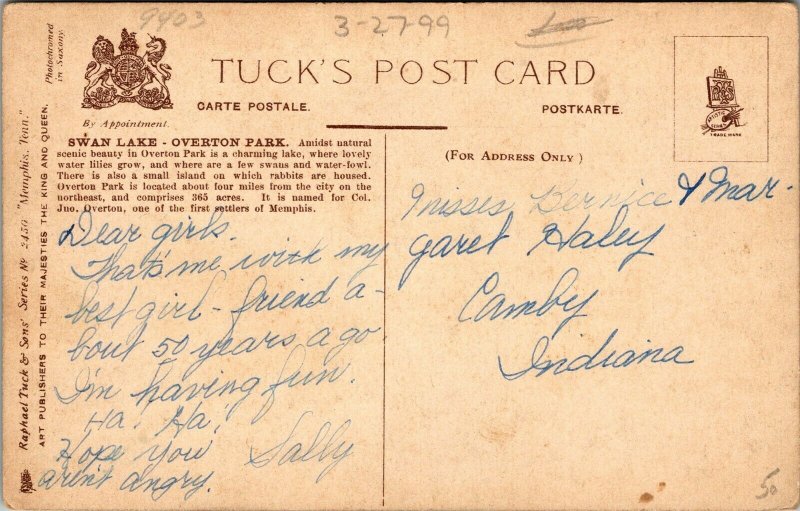 9903
3-27-99
Photochromed
in Saxony.
By Appointment.
TUCK'S POST CARD
CARTE POSTALE.
POSTKARTE.
TRADE MARK
Raphael Tuck & Sons' Series Nº 2450 "Memphis, Tenn."
ART PUBLISHERS TO THEIR MAJESTIES THE KING AND QUEEN.
SWAN LAKE - OVERTON PARK. Amidst natural
scenic beauty in Overton Park is a charming lake, where lovely
water lilies grow, and where are a few swans and water-fowl.
There is also a small island on which rabbits are housed.
Overton Park is located about four miles from the city on the
northeast, and comprises 365 acres. It is named for Col.
Jno. Overton, one of the first settlers of Memphis.
(FOR ADDRESS ONLY)
Dear girls.
That's me with my
best girl-friend a-
bout 50 years ago
I'm having fun.
Ha! Ha!
Hope you
arint angry.
Sally
Misses Bernice & Mar-
garet Haley
Camby
Indiana
50